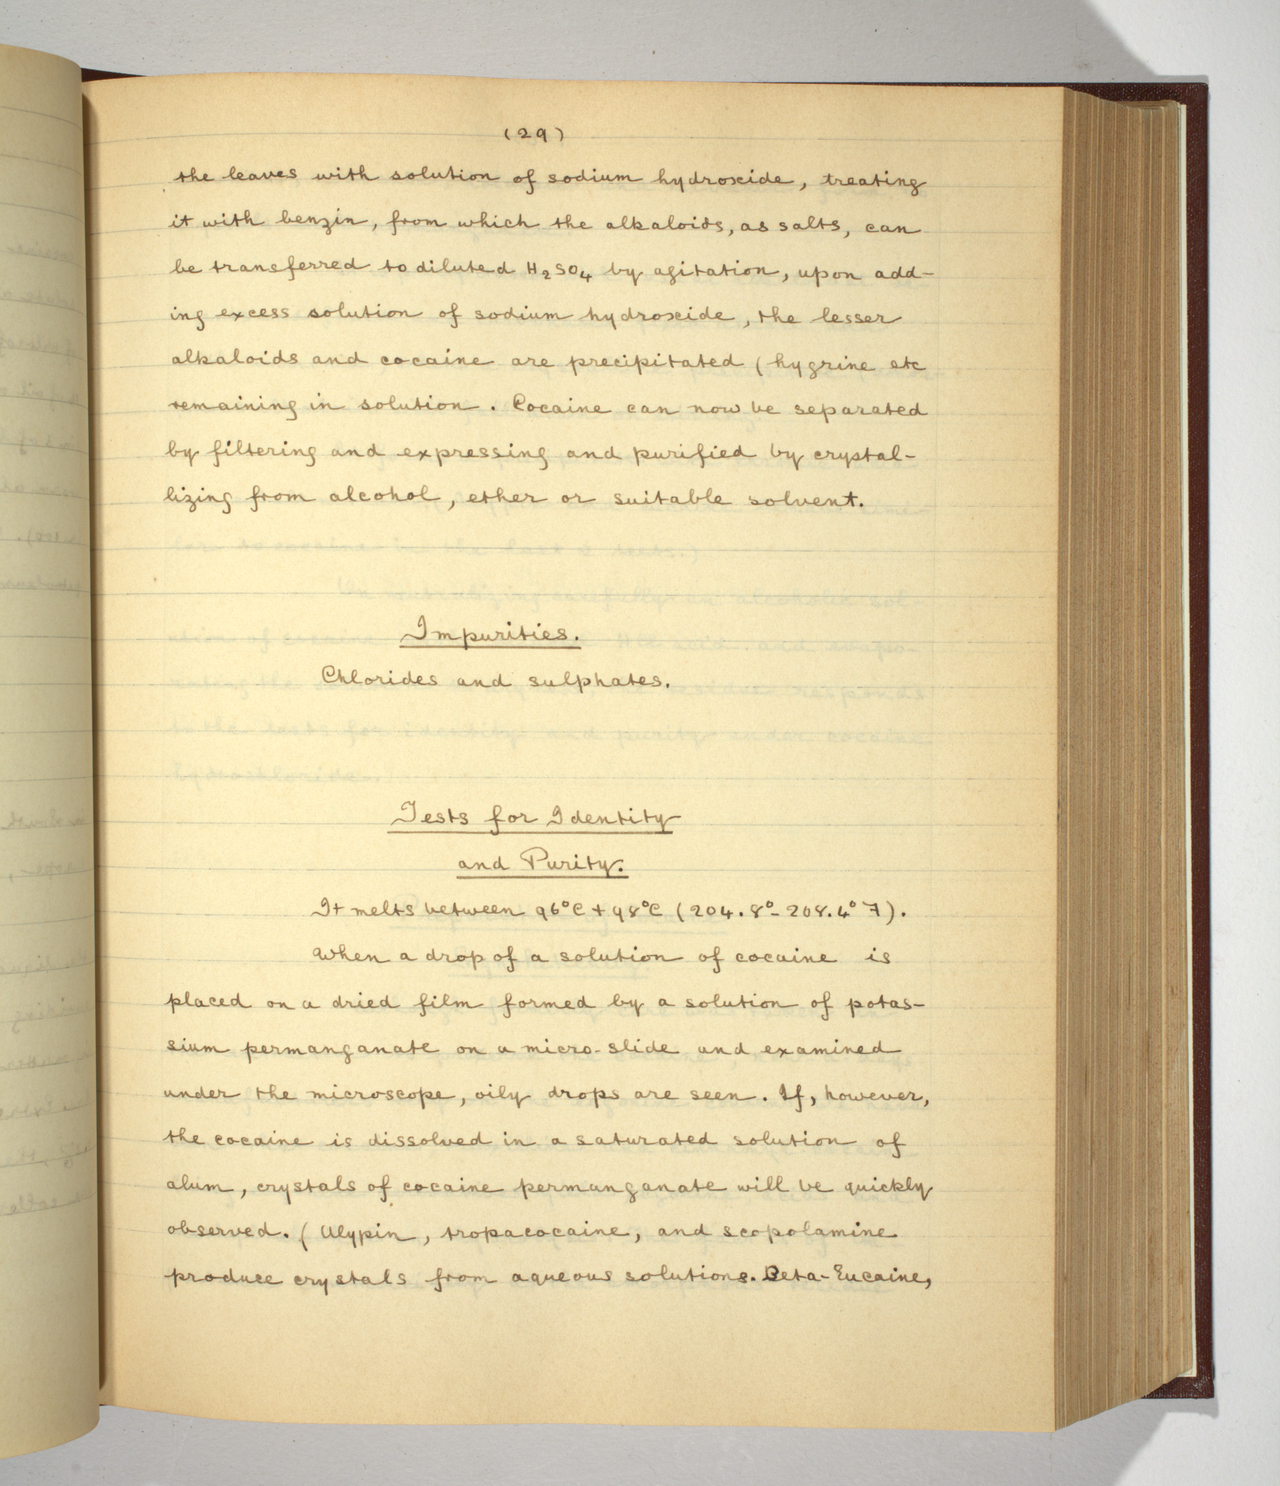 (29)
the leaves with solution of sodium hydroxide, treating
it with benzin, from which the alkaloids, as salts, can
be transferred to diluted H2SO4 by agitation, upon add-
ing excess solution of sodium hydroxide, the lesser
alkaloids and cocaine are precipitated (hygrine etc
remaining in solution. Cocaine can now be separated
by filtering and expressing and purified by crystal-
lizing from alcohol, ether or suitable solvent.
Impurities.
Chlorides and sulphates.
Tests for Identity
and Purity.
It melts between 96°C + 98°C (204.8°-208.4°F).
When a drop of a solution of cocaine is
placed on a dried film formed by a solution of potas-
sium permanganate on a micro-slide and examined
under the microscope, oily drops are seen. If, however,
the cocaine is dissolved in a saturated solution of
alum, crystals of cocaine permanganate will be quickly
observed. (Alypin, tropacocaine, and scopolamine
produce crystals from aqueous solutions. Beta-Eucaine,